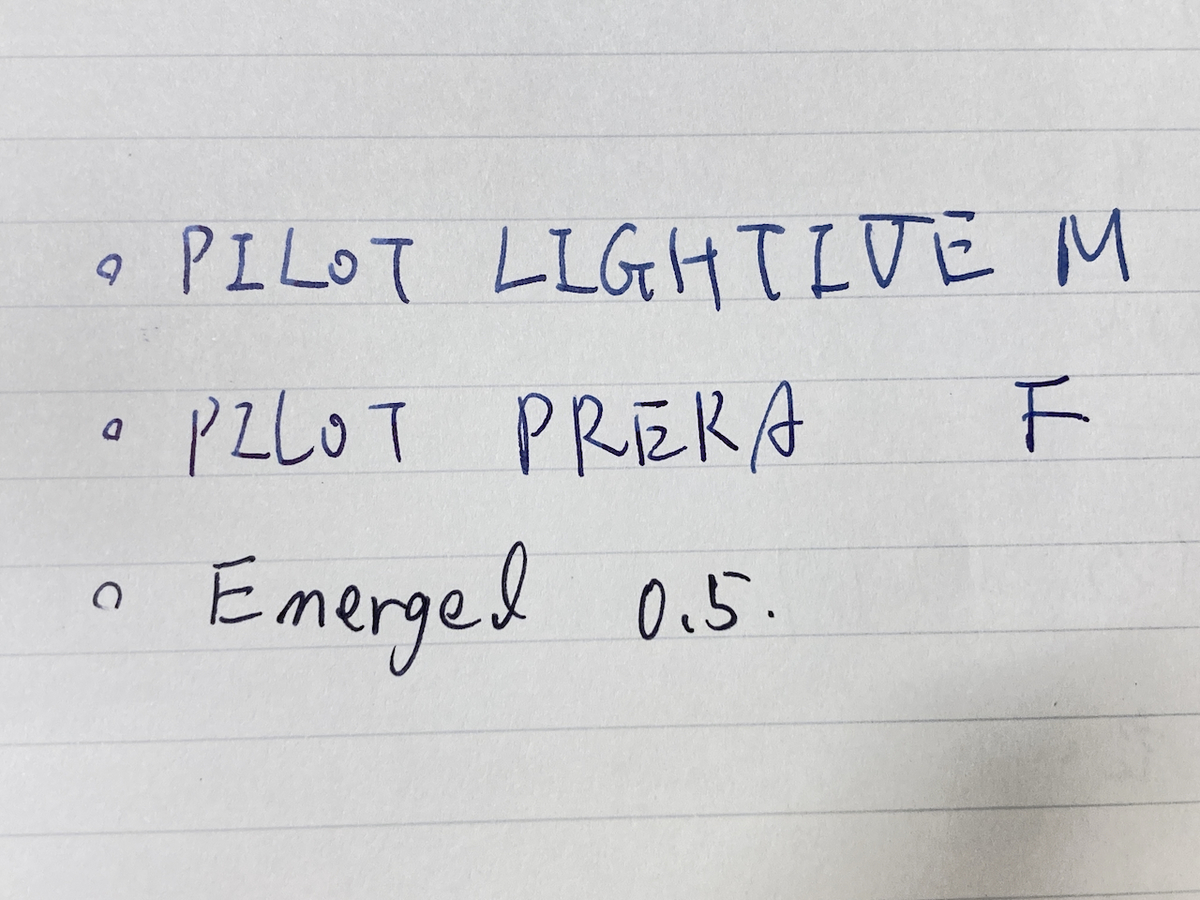 o PILOT LIGHTIVE M
o PILOT PRERA F
o Emerged 0.5.